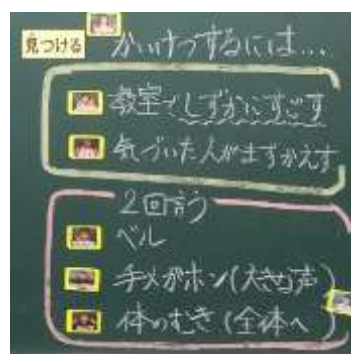 見つける かいけつするには…
教室でしずかにすごす
気づいた人がまずかえす
2回言う
ベル
手メガホン(大きな声)
体のむき(全体へ)